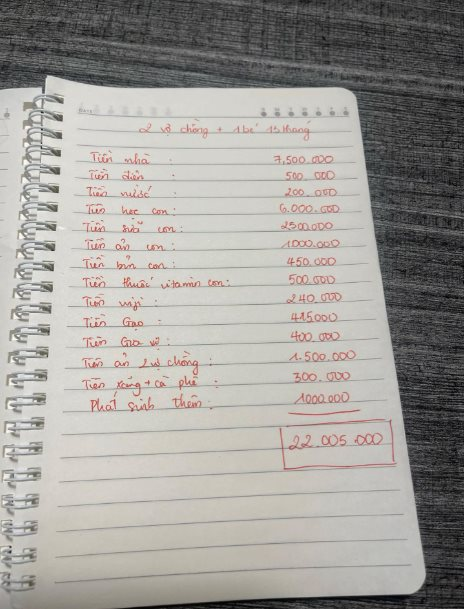 DATE
2 vợ chồng + 1 bé 15 tháng
Tiền nhà : 7,500.000
Tiền điện : 500.000
Tiền nước : 200.000
Tiền học con : 6.000.000
Tiền sữa con : 2500.000
Tiền ăn con : 1000.000
Tiền bỉm con : 450.000
Tiền thuốc vitamin con : 500.000
Tiền wifi : 240.000
Tiền Gạo : 415.000
Tiền Gia vị : 400.000
Tiền ăn 2 vợ chồng : 1.500.000
Tiền xăng + cà phê : 300.000
Phát sinh thêm : 1000.000
22.005.000